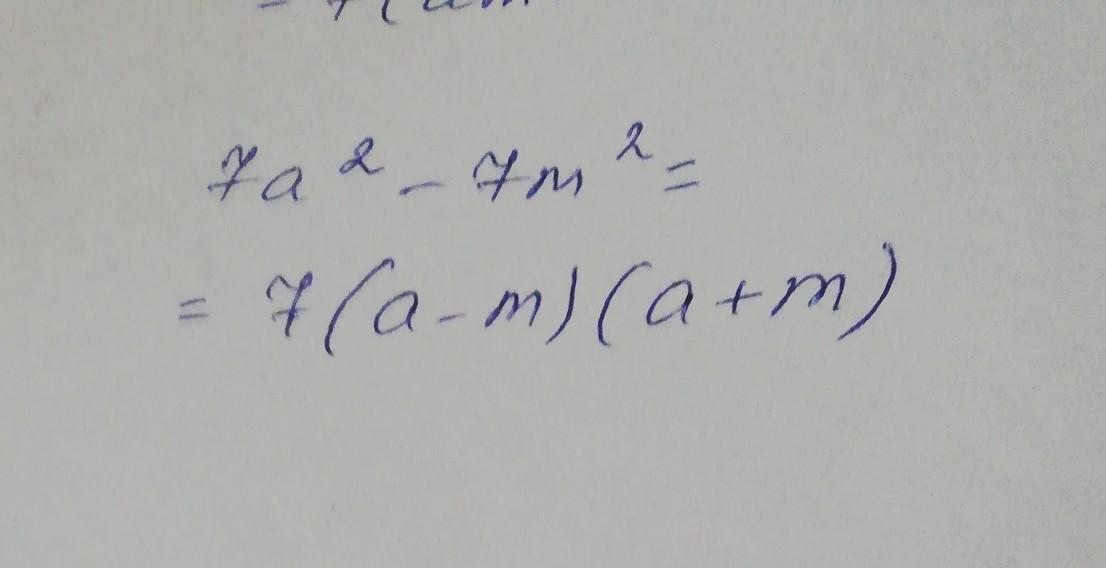 7a² - 7m² =
= 7(a-m)(a+m)